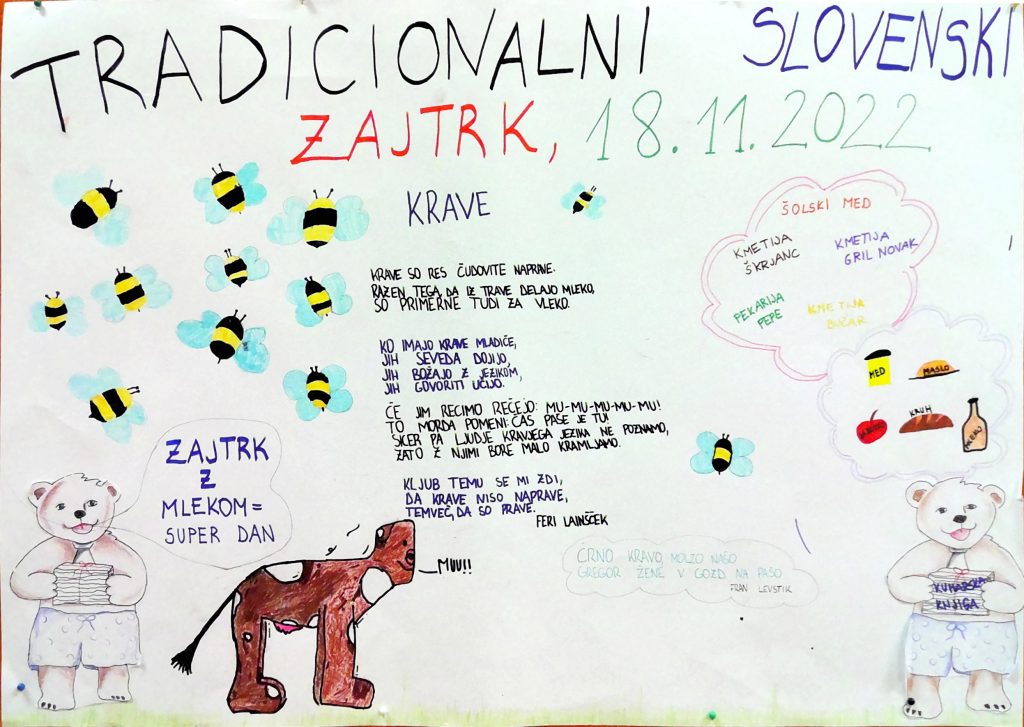 TRADICIONALNI SLOVENSKI
ZAJTRK, 18.11.2022
KRAVE
KRAVE SO RES ČUDOVITE NAPRAVE.
RAZEN TEGA, DA IZ TRAVE DELAJO MLEKO,
SO PRIMERNE TUDI ZA VLEKO.
KO IMAJO KRAVE MLADIČE,
JIH SEVEDA DOJIJO,
JIH BOŽAJO Z JEZIKOM,
JIH GOVORITI UČIJO.
ČE JIM RECIMO REČEJO: MU-MU-MU-MU-MU!
TO MORDA POMENI: ČAS PAŠE JE TU!
SKER PA LJUDJE KRAVJEGA JEZIKA NE POZNAMO,
ZATO Z NJIMI BORE MALO KRAMLJAMO.
KLJUB TEMU SE MI ZDI,
DA KRAVE NISO NAPRAVE,
TEMVEČ, DA SO PRAVE.
FERI LAINŠČEK
ŠOLSKI MED
KMETIJA
ŠKRJANC
KMETIJA
GRIL NOVAK
PEKARIJA
PEPE
KMETIJA
BUČAR
MED
MASLO
JABOLKO
KRUH
MLEKO
ZAJTRK
Z
MLEKOM =
SUPER DAN
MUU!!
ČRNO KRAVO, MOLZO NAŠO
GREGOR ŽENE V GOZD NA PAŠO
FRAN LEVSTIK
KUHARSKA
KNJIGA